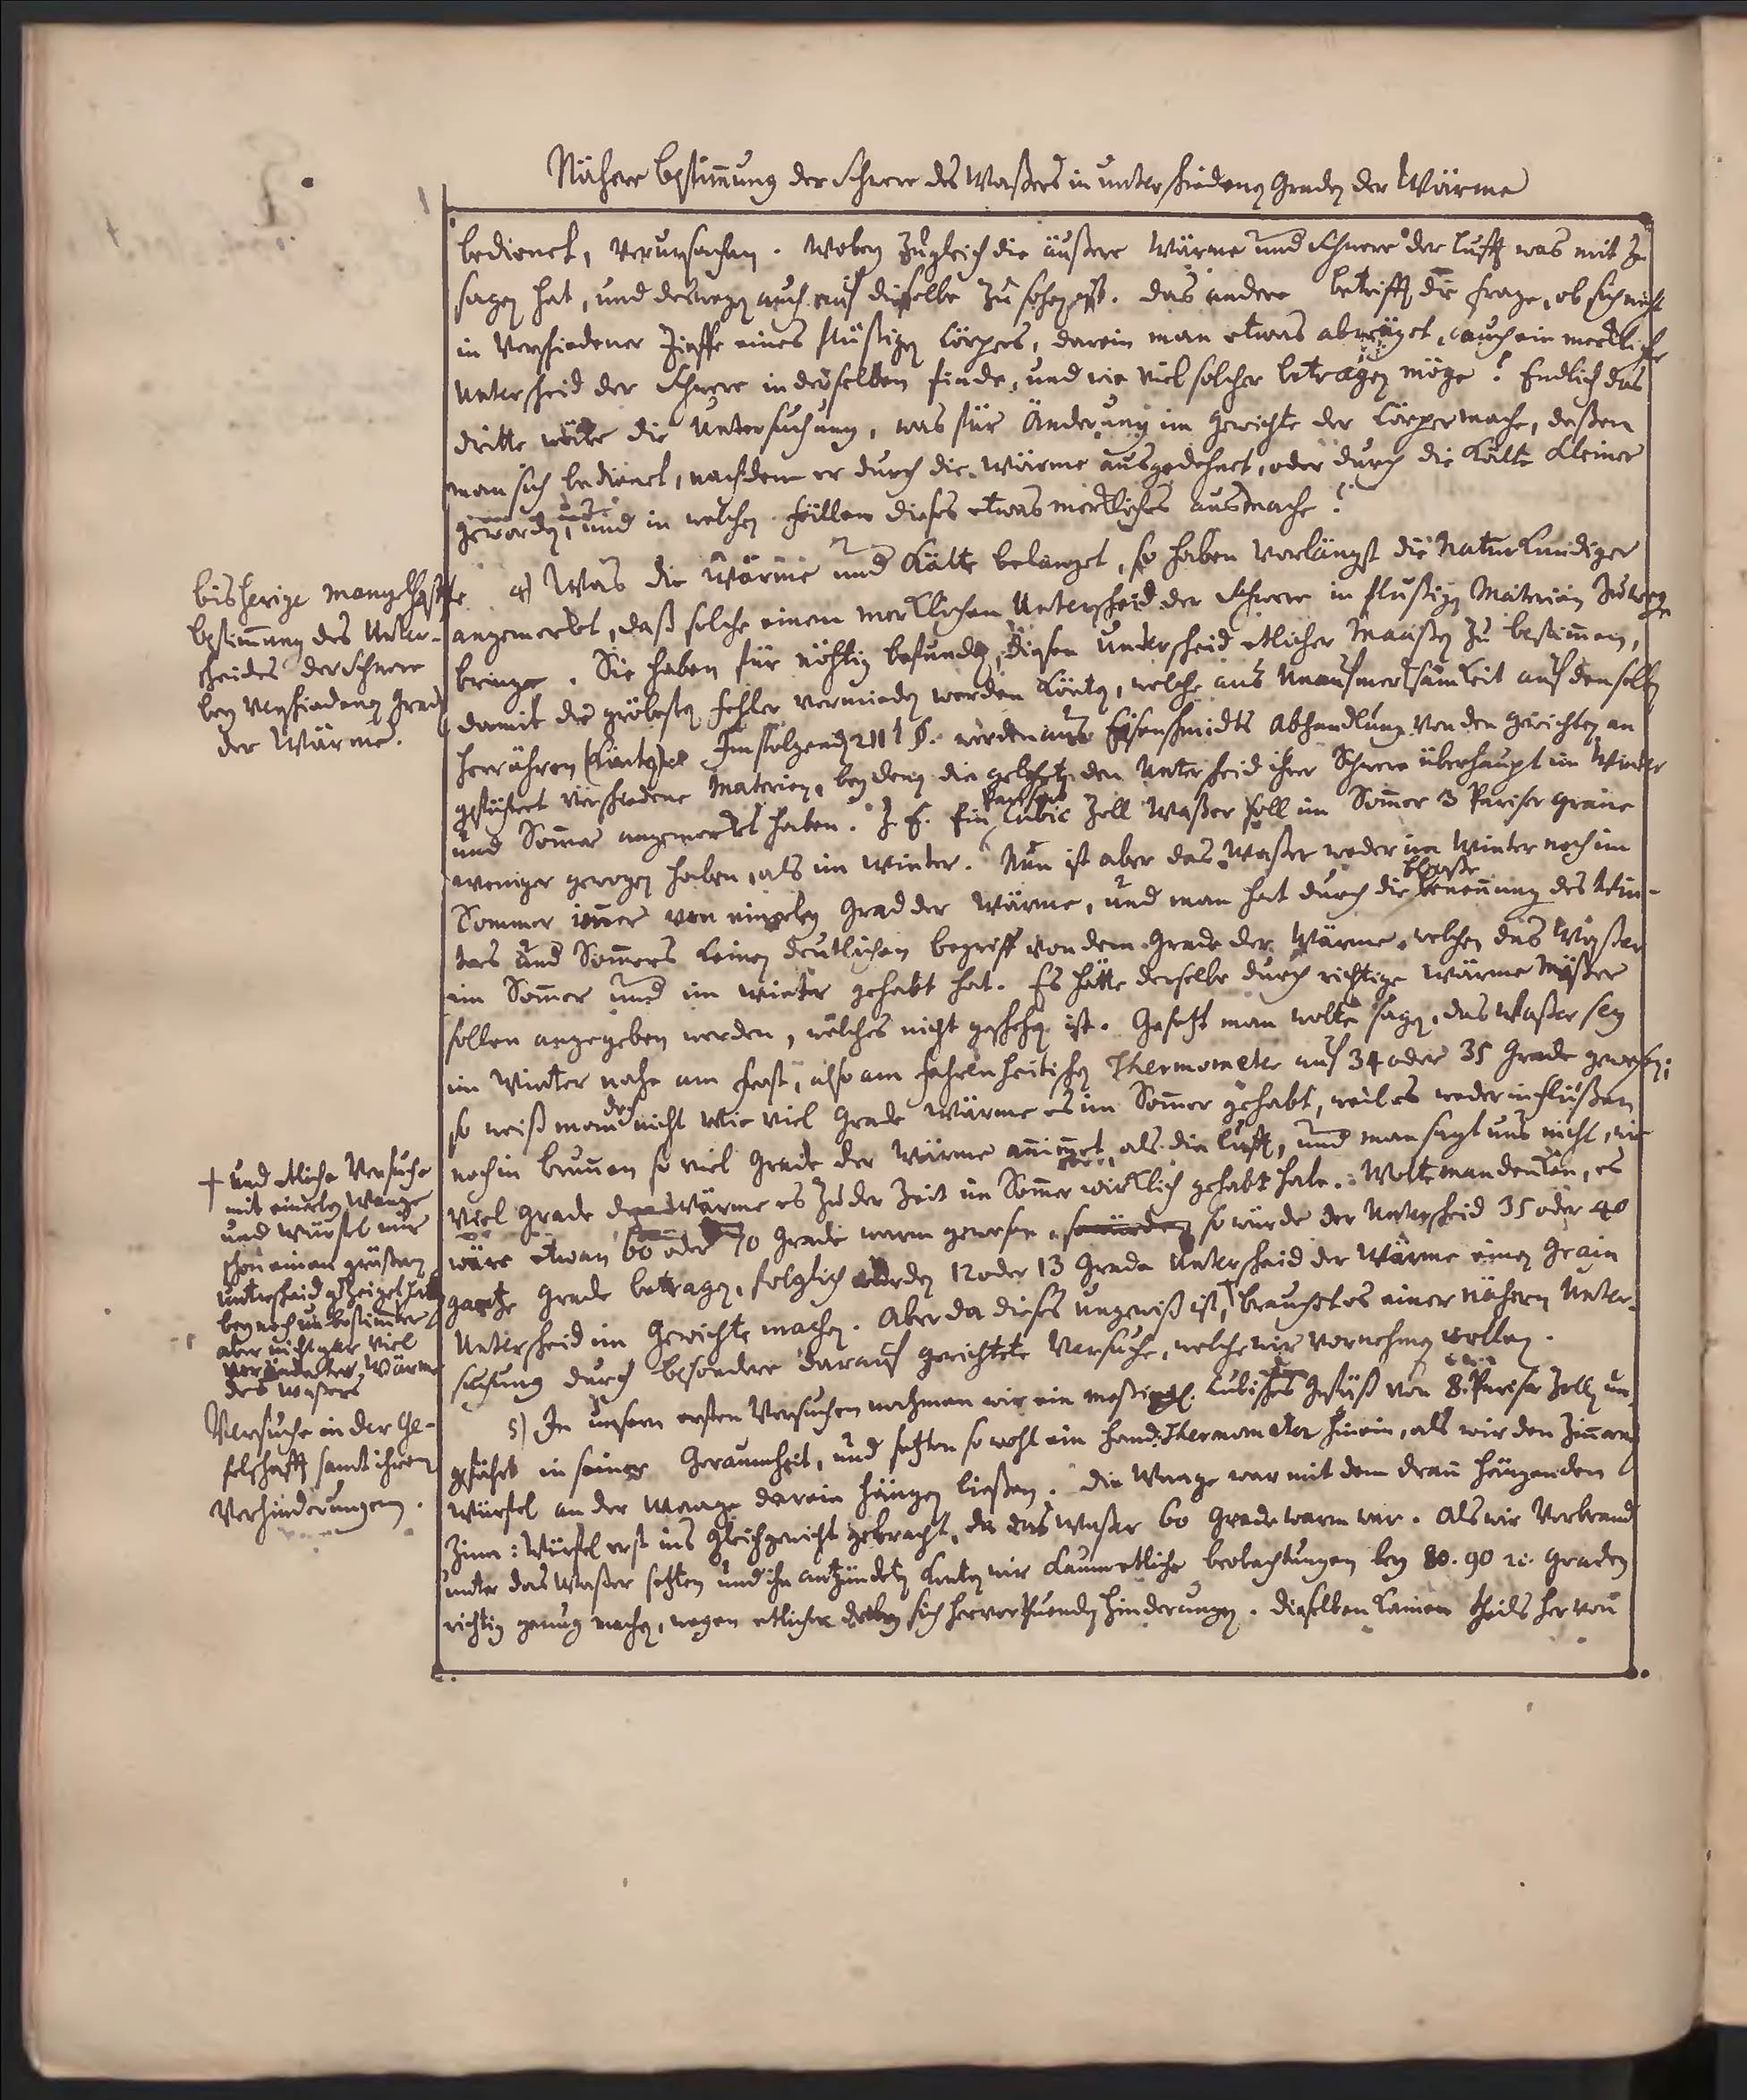 Nähere bestim̄ung der Schwere des Waßers in unterschiedenen Graden der Wärme
bedienet, verursachen. Wobey zugleich die äußere Wärme und Schwere der Lufft was mit zu
sagen hat, und deswegen auch auf dieselbe zu sehen ist. Das andere betrifft die Frage, ob sich nicht
in verschiedener Tieffe eines flüßigen Cörpers, darein man etwas abwäget, auch ein mercklicher
Unterscheid der Schwere in demselben finde, und wie viel solcher betragen möge? Endlich das
dritte wäre die Untersuchung, was für Änderung im Gewichte der Cörper mache, deßen
man sich bedienet, nachdem er durch die Wärme ausgedehnet, oder durch die Kälte kleiner
geworden, und in welchen Fällen dieses etwas merckliches ausmache?
bisherige mangelhaffte
bestim̄ung des Unter-
scheides der Schwere
bey verschiedenen Graden
der Wärme.
4) Was die Wärme und Kälte belanget, so haben vorlängst die Naturkundiger
angemerkt, daß solche einen mercklichen Unterscheid der Schwere in flüßigen Materien zuwege
bringe. Sie haben für nöhtig befunden, diesen Unterscheid etlicher Maaßen zu bestim̄en,
damit die gröbesten Fehler vermieden werden könten, welche aus Unaufmercksamkeit auf denselben
herrühren könten. Im folgenden 211 §. werden aus Eisenschmidts Abhandlung von den Gewichten an
geführet verschiedene Materien, bey denen die Gelehrten den Unterscheid ihrer Schwere überhaupt im Winter
und Som̄er angemerkt haben. Z. E. Ein Pariser Cubic Zoll Waßer soll im Som̄er 3 Pariser Graine
weniger gewogen haben, als im Winter. Nun ist aber das Waßer weder im Winter noch im
Sommer im̄er von einerley Grad der Wärme, und man hat durch die bloße Benen̄ung des Win-
ters und Som̄ers keinen deutlichen begriff von dem Grade der Wärme, welchen das Waßer
im Som̄er und im Winter gehabt hat. Es hätte derselbe durch richtige Wärme Mäßer
sollen angegeben werden, welches nicht geschehen ist. Gesetzt man wolte sagen, das Waßer sey
im Winter nahe am Frost, also am Fahrenheitischen Thermometer auf 34 oder 35 Grade gewesen;
so weiß man doch nicht wie viel Grade Wärme es im Som̄er gehabt, weil es weder in Flüßen
noch in Brun̄en so viel Grade der Wärme an̄im̄et, als die Lufft, und man sagt uns nicht, wie
viel Grade der Wärme es zu der Zeit im Som̄er wircklich gehabt habe. Wolte man dencken, es
wäre etwan 60 oder 70 Grade warm gewesen, so würde der Unterscheid 35 oder 40
gantze Grade betragen, folglich würden 12 oder 13 Grade Unterscheid der Wärme einen Grain
Unterscheid im Gewichte machen. Aber da dieses ungewiß ist, † brauchet es einer nähern Unter-
suchung durch besondere darauf gerichtete Versuche, welche wir vornehmen wollen.
† und etliche Versuche
mit einerley Waage
und Würfel mir
schon einen größern
Unterscheid gezeiget haben
bey noch un-bestim̄ter
aber nicht gar viel
veränderter Wärme
des Waßers
Versuche in der Ge-
selschafft samt ihren
Verhinderungen.
5) In unsern ersten Versuchen nahmen wir ein Cubisches Gefäß von 8. Pariser Zollen un-
gefähr in seiner Geraumheit, und setzten so wohl ein Hand: Thermometer hinein, als wir den Zinnern
Würfel an der Waage darein hängen ließen. Die Waage war mit dem dran hängenden
Zinn: Würfel erst ins Gleichgewicht gebracht, da das Waßer 60 Grade warm war. Als wir Verbrand
unter das Waßer setzten und ihn antzündeten konten wir kaum etliche beobachtungen bey 80. 90 ꝛc. Graden
richtig genug machen, wegen etlicher dabey sich hervorthuenden Hinderungen. Dieselben kamen theils her von